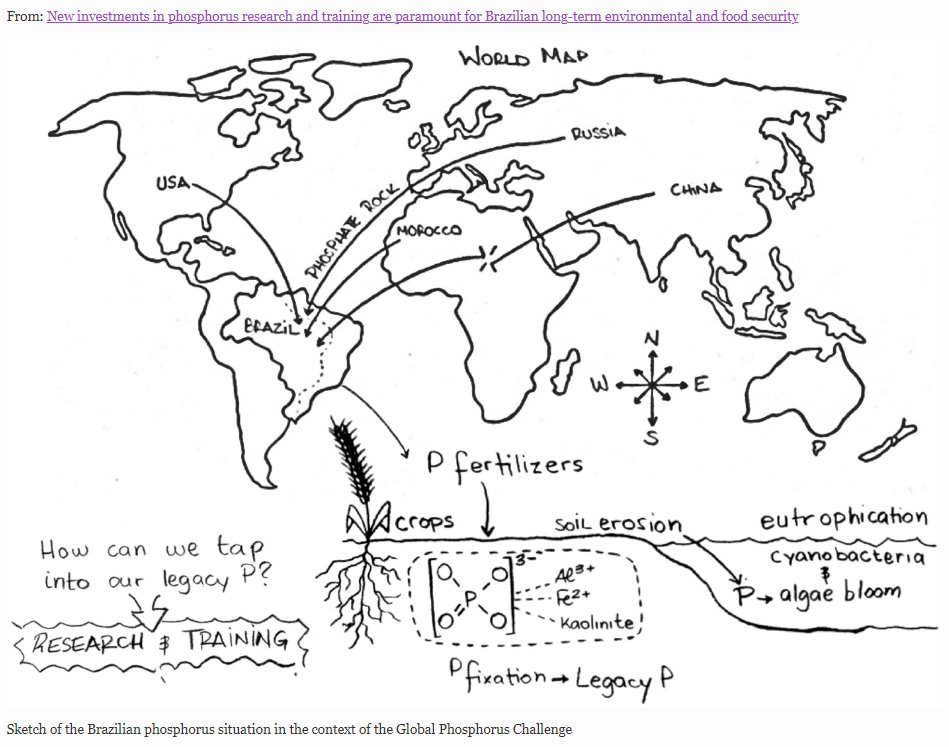 From: New investments in phosphorus research and training are paramount for Brazilian long-term environmental and food security
WORLD MAP
RUSSIA
USA
CHINA
PHOSPHATE ROCK
MOROCCO
BRAZIL
N
W E
S
P fertilizers
crops
soil erosion
eutrophication
cyanobacteria
&
P → algae bloom
How can we tap
into our legacy P?
RESEARCH & TRAINING
O O 3-
P
O O
Al3+
Fe2+
Kaolinite
P fixation → Legacy P
Sketch of the Brazilian phosphorus situation in the context of the Global Phosphorus Challenge